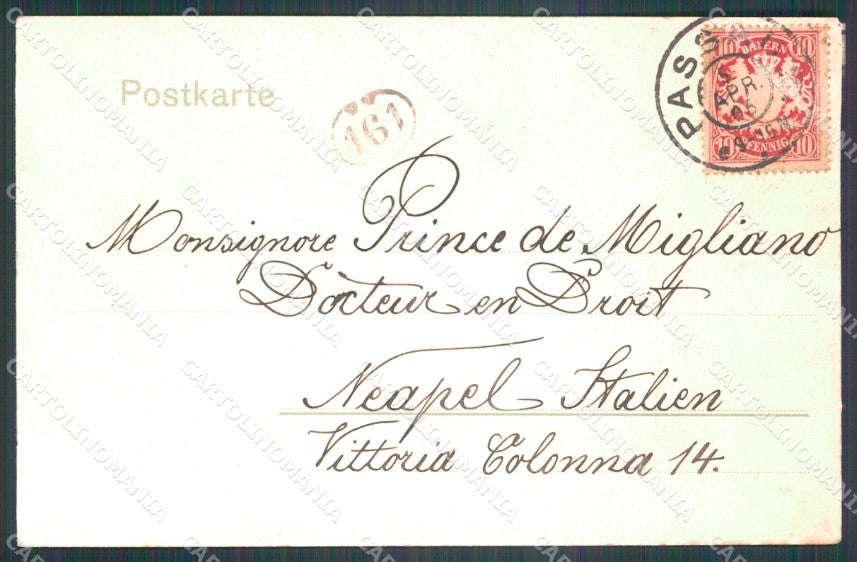 Postkarte
161
BAYERN
10 10
PASSAU
APR.
05
10 PFENNIG 10
Monsignore Prince de Migliano
Docteur en Droit
Neapel Italien
Vittoria Colonna 14.
CARTOLINOMANIA